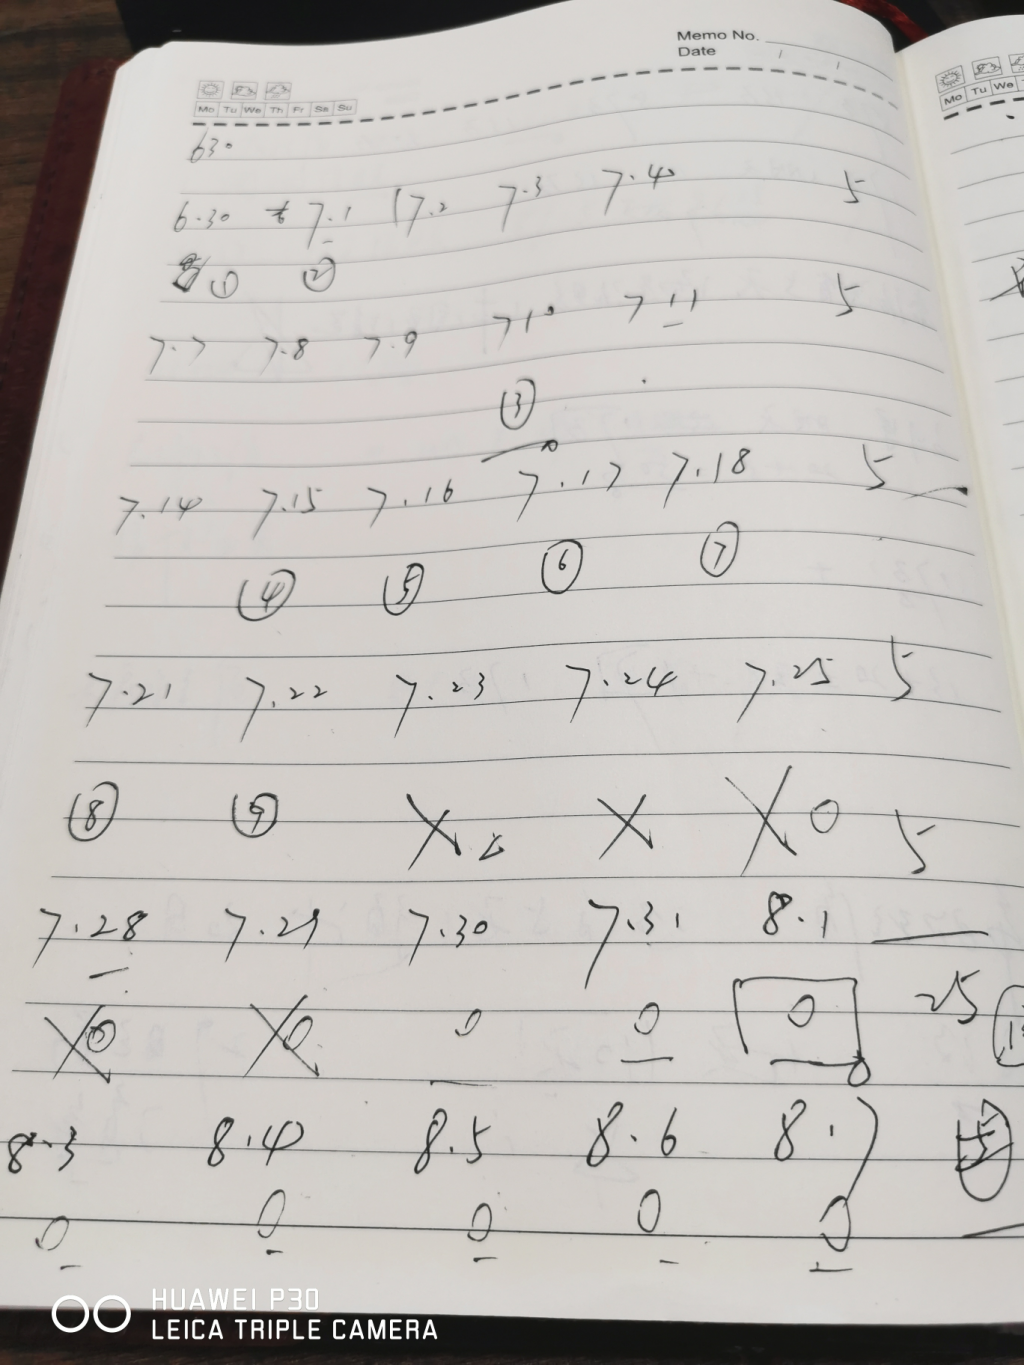 Memo No.
Date
Mo Tu We Th Fr Sa Su
Mo Tu We
630
6.30 7.1 7.2 7.3 7.4 5
① ②
7.7 7.8 7.9 7.10 7.11 5
③
7.14 7.15 7.16 7.17 7.18 5
④ ⑤ ⑥ ⑦
7.21 7.22 7.23 7.24 7.25 5
⑧ ⑨ X X X 0 5
7.28 7.29 7.30 7.31 8.1
0 0 0 0 0 25
8.3 8.4 8.5 8.6 8.7
0 0 0 0 0
HUAWEI P30
LEICA TRIPLE CAMERA